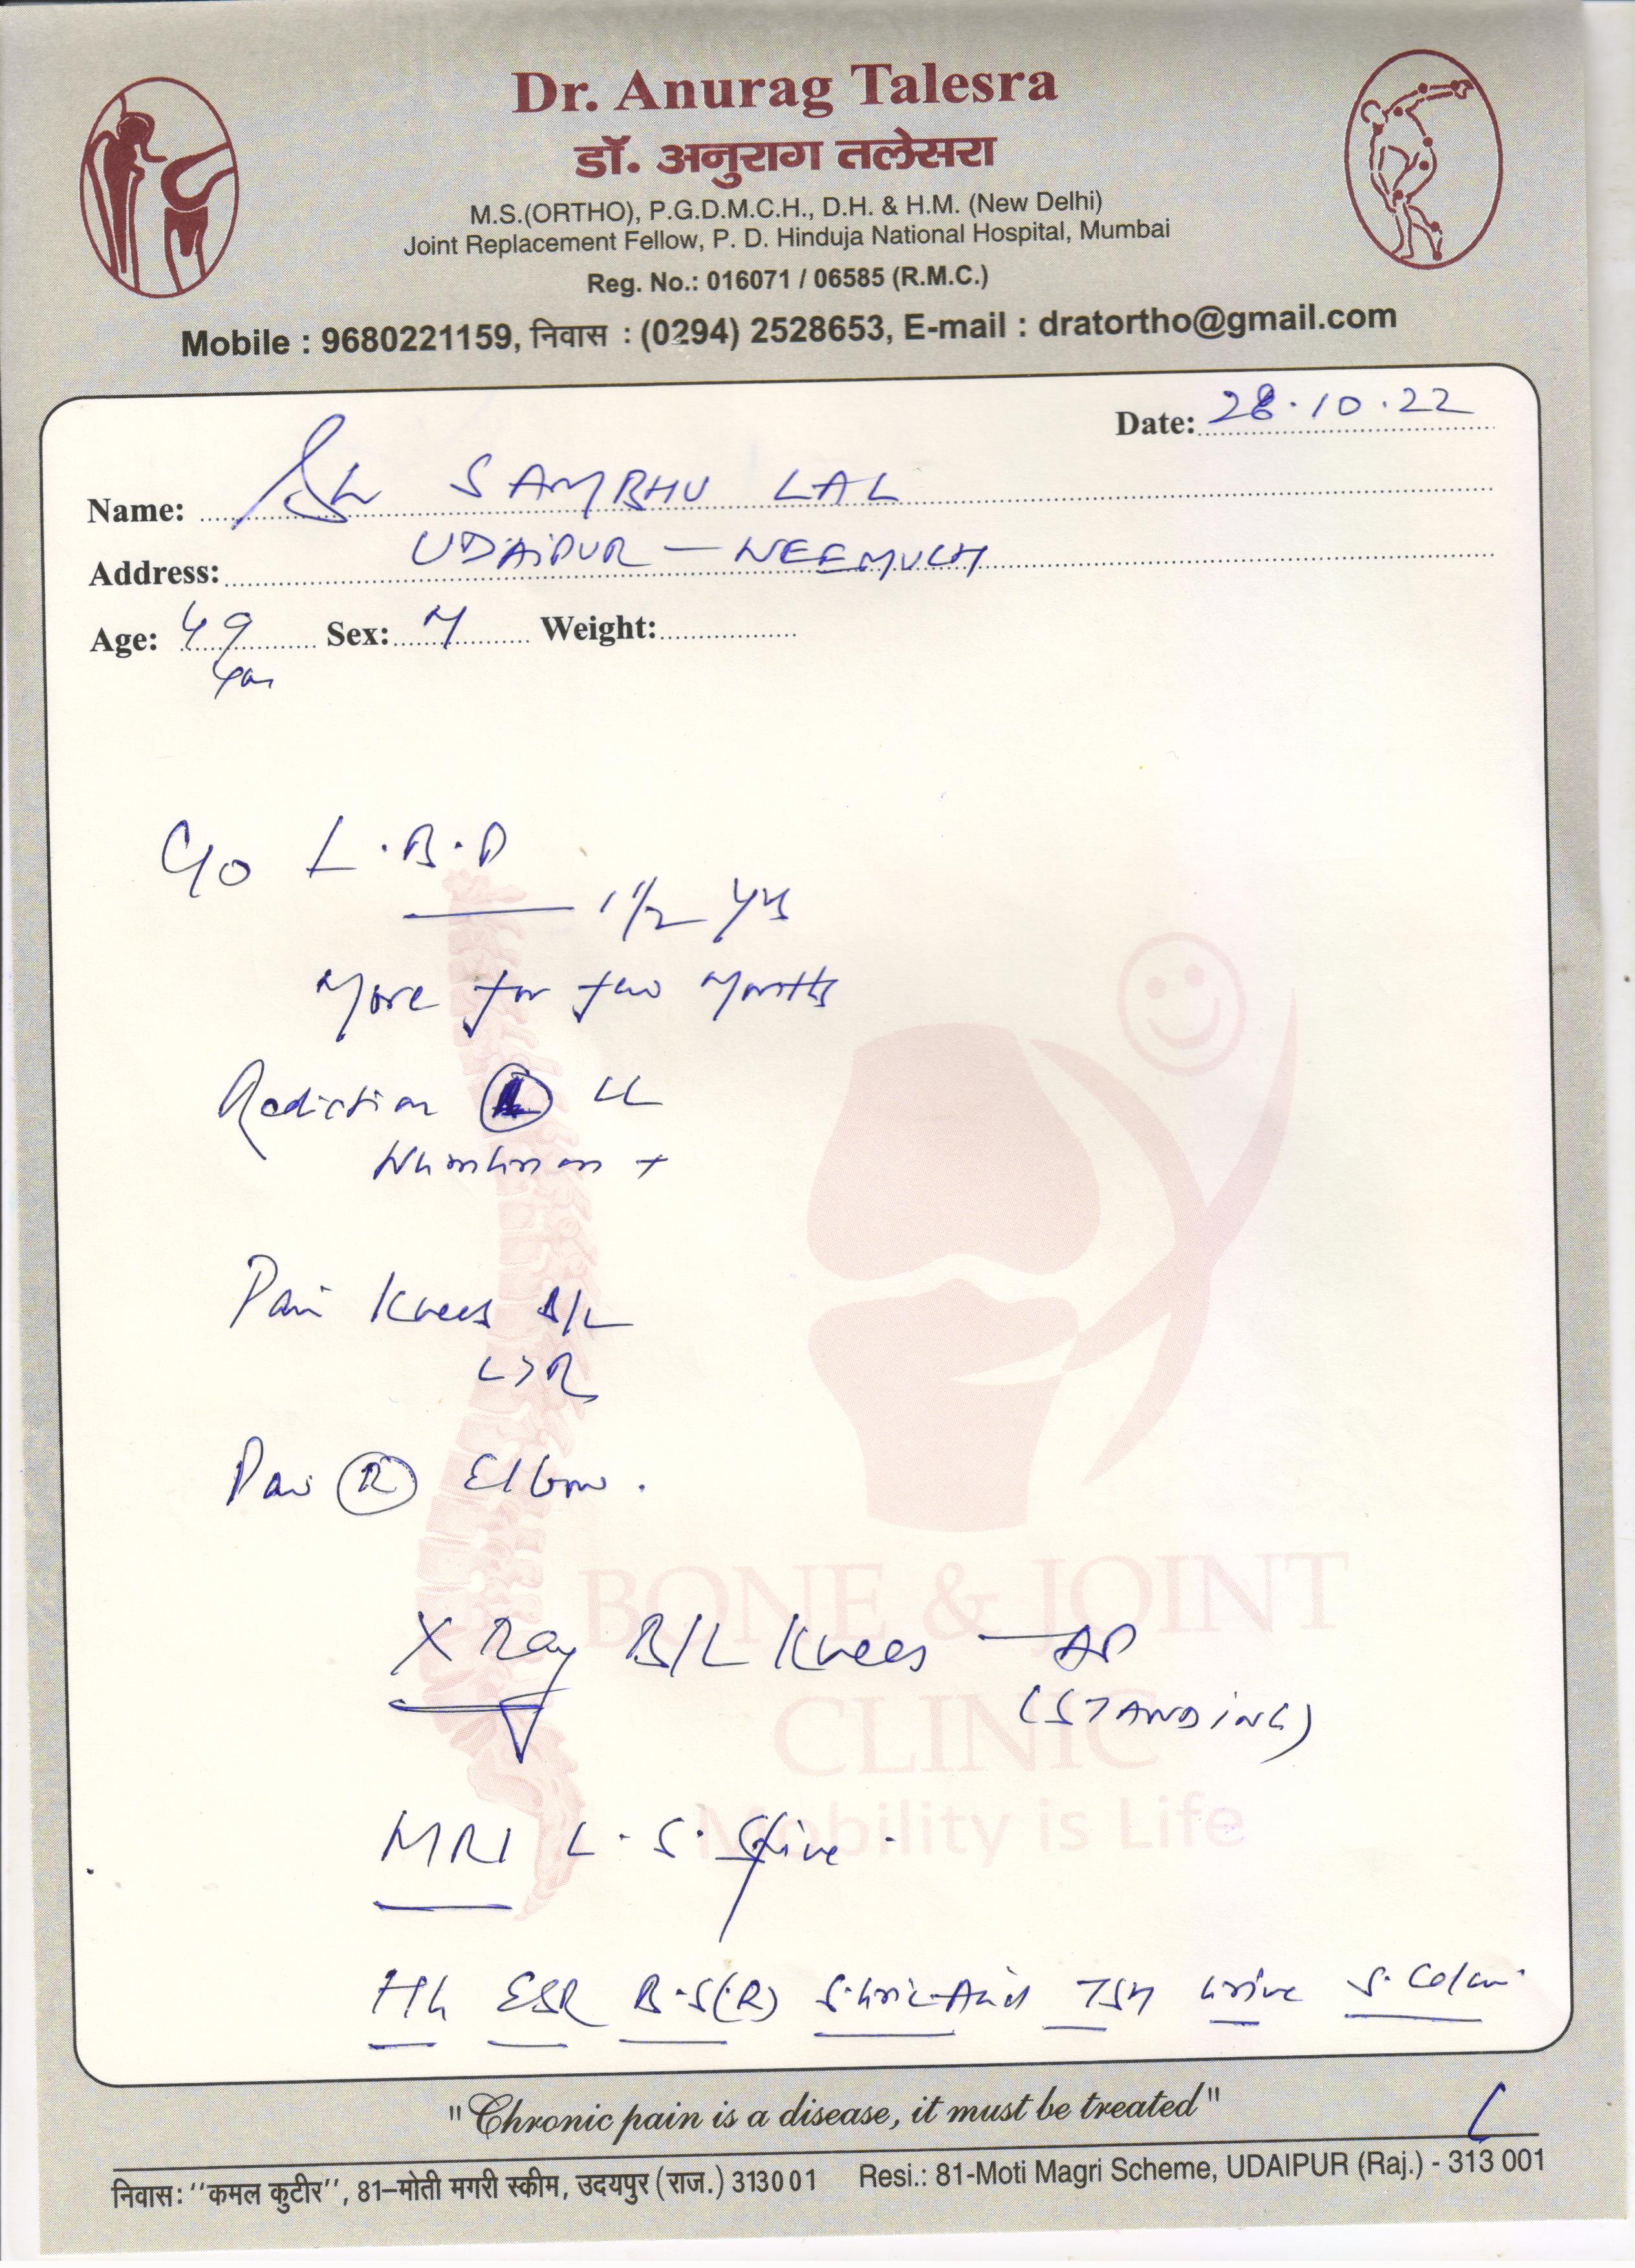 Dr. Anurag Talesra
डॉ. अनुराग तलेसरा
M.S.(ORTHO), P.G.D.M.C.H., D.H. & H.M. (New Delhi)
Joint Replacement Fellow, P. D. Hinduja National Hospital, Mumbai
Reg. No.: 016071 / 06585 (R.M.C.)
Mobile : 9680221159, निवास : (0294) 2528653, E-mail : dratortho@gmail.com
Date: 28.10.22
Name: Sh SAMBHU LAL
Address: UDAIPUR — NEEMUCH
Age: 49 Sex: M Weight:
C/o L.B.P
— 1 1/2 yrs
More for few Months
Radiction (L) LL
Numbness +
Pain Knees B/L
L>R
Pain (R) Elbow.
BONE & JOINT
X Ray B/L Knees — AP
(STANDING)
CLINIC
Mobility is Life
MRI L.S. Spine.
Hb ESR B.S(R) S.Uric Acid TSH Urine S.
"Chronic pain is a disease, it must be treated"
निवास: ''कमल कुटीर'', 81–मोती मगरी स्कीम, उदयपुर (राज.) 313001 Resi.: 81-Moti Magri Scheme, UDAIPUR (Raj.) - 313 001